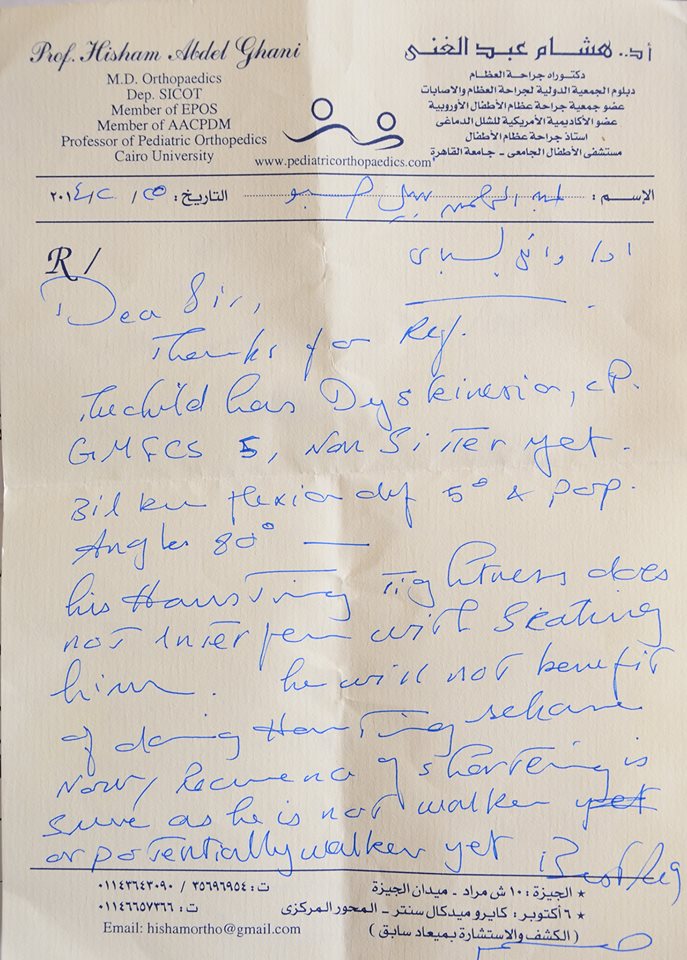 Prof. Hisham Abdel Ghani
M.D. Orthopaedics
Dep. SICOT
Member of EPOS
Member of AACPDM
Professor of Pediatric Orthopedics
Cairo University
أ.د. هشام عبد الغنى
دكتوراه جراحة العظام
دبلوم الجمعية الدولية لجراحة العظام والاصابات
عضو جمعية جراحة عظام الأطفال الأوروبية
عضو الأكاديمية الأمريكية للشلل الدماغى
استاذ جراحة عظام الأطفال
مستشفى الأطفال الجامعى - جامعة القاهرة
www.pediatricorthopaedics.com
الإسم : عبد الرحمن نبيل
التاريخ : ٢٥ / ٢ / ٢٠١٤
R/
Dear Sir,
Thanks for Ref.
The child has Dyskinesia, CP.
GMFCS 5, Non Sitter yet.
Bil knee flexion def 5° & pop.
Angles 80°
his Hamstring tightness does
not interfere with Seating
him. he will not benefit
of doing Hamstring release
Now, Recurrence of shortening is
sure as he is not walker yet
or potentially walker yet
Best Reg
★ الجيزة : ١٠ ش مراد - ميدان الجيزة
ت : ٣٥٦٩٦٩٥٤ / ٠١١٤٣٦٤٣٠٩٠
★ ٦ أكتوبر : كايرو ميدكال سنتر - المحور المركزى
ت : ٠١١٤٦٦٥٧٣٦٦
Email: hishamortho@gmail.com
( الكشف والاستشارة بميعاد سابق )